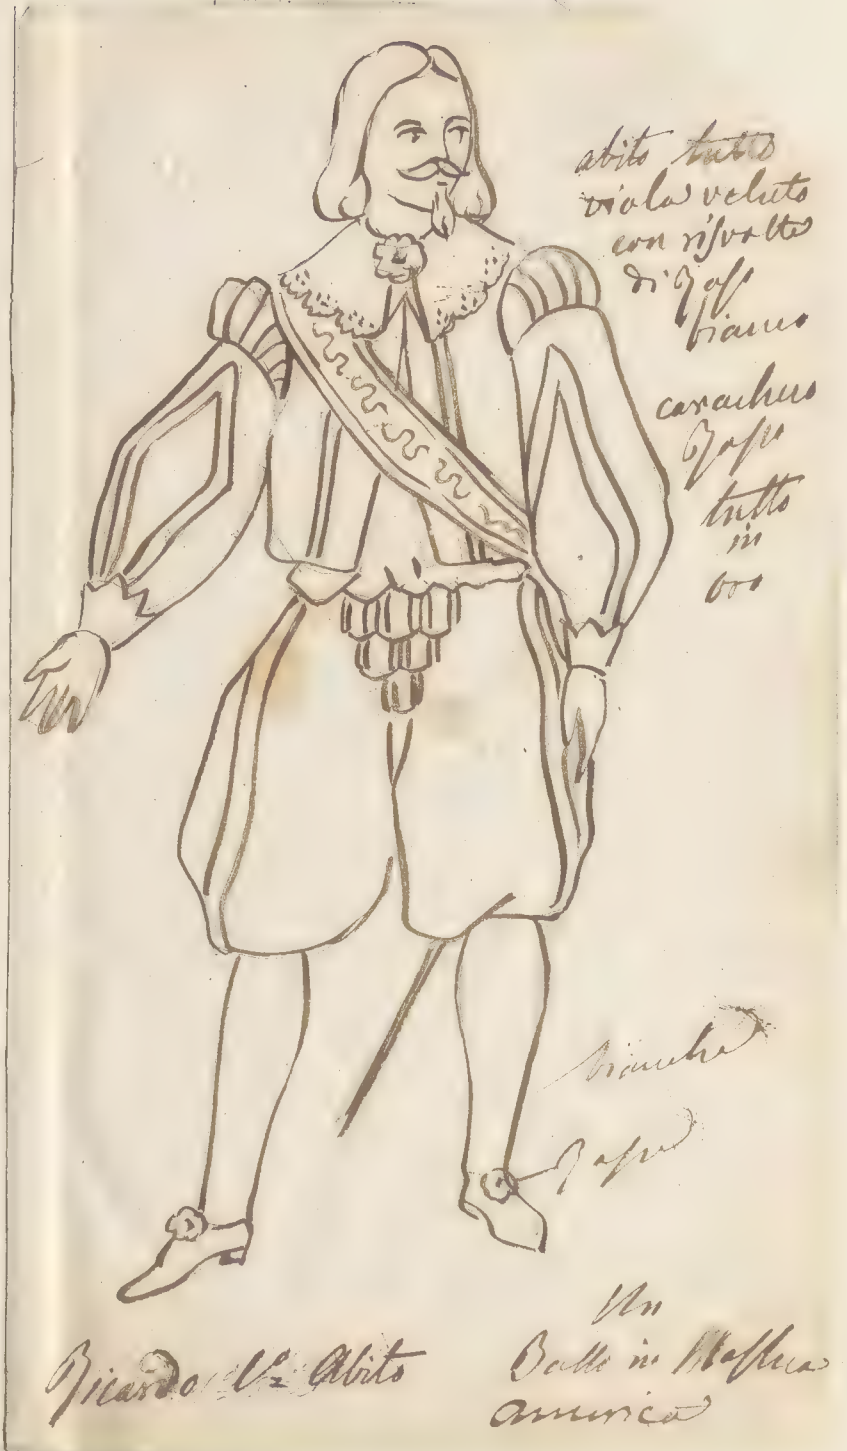 abito tutto
viola veluto
con risvolte
di Raso
bianco
Raso
tutto
in
oro
bianche
Ricardo Abito
Un
Ballo in Maschera
America